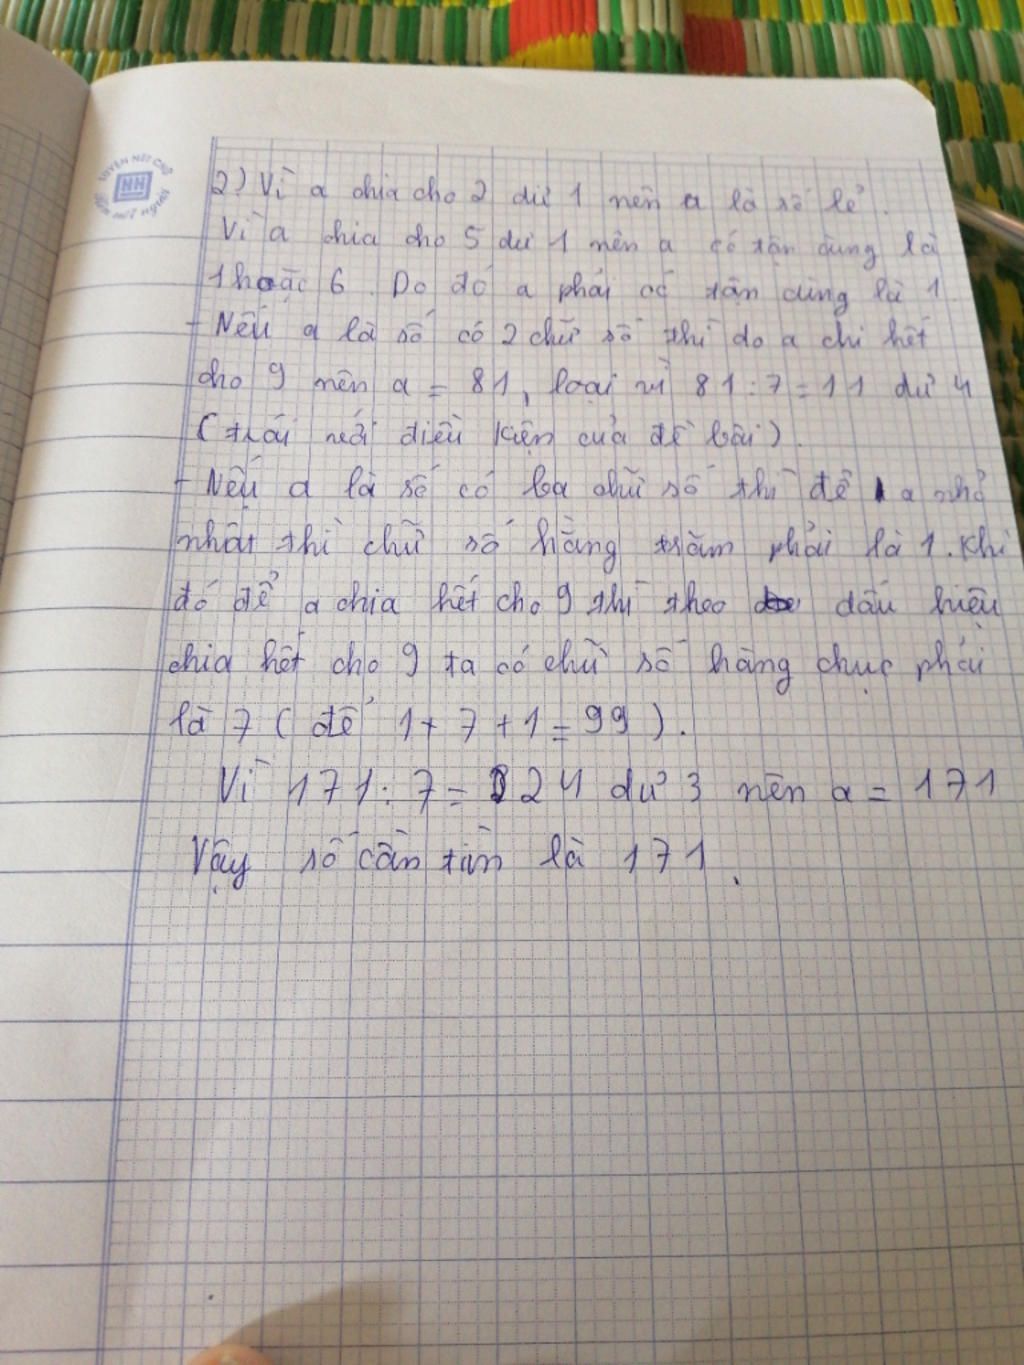 LUYỆN NÉT CHỮ
NH
rèn nết người
2) Vì a chia cho 2 dư 1 nên a là số lẻ.
Vì a chia cho 5 dư 1 nên a có tận cùng là
1 hoặc 6. Do đó a phải có tận cùng là 1
- Nếu a là số có 2 chữ số thì do a chi hết
cho 9 nên a = 81, loại vì 81 : 7 = 11 dư 4
(trái với điều kiện của đề bài).
- Nếu a là số có ba chữ số thì để a nhỏ
nhất thì chữ số hàng trăm phải là 1. Khi
đó để a chia hết cho 9 thì theo dấu hiệu
chia hết cho 9 ta có chữ số hàng chục phải
là 7 ( để 1 + 7 + 1 = 99 ).
Vì 171 : 7 = 24 dư 3 nên a = 171
Vậy số cần tìm là 171.